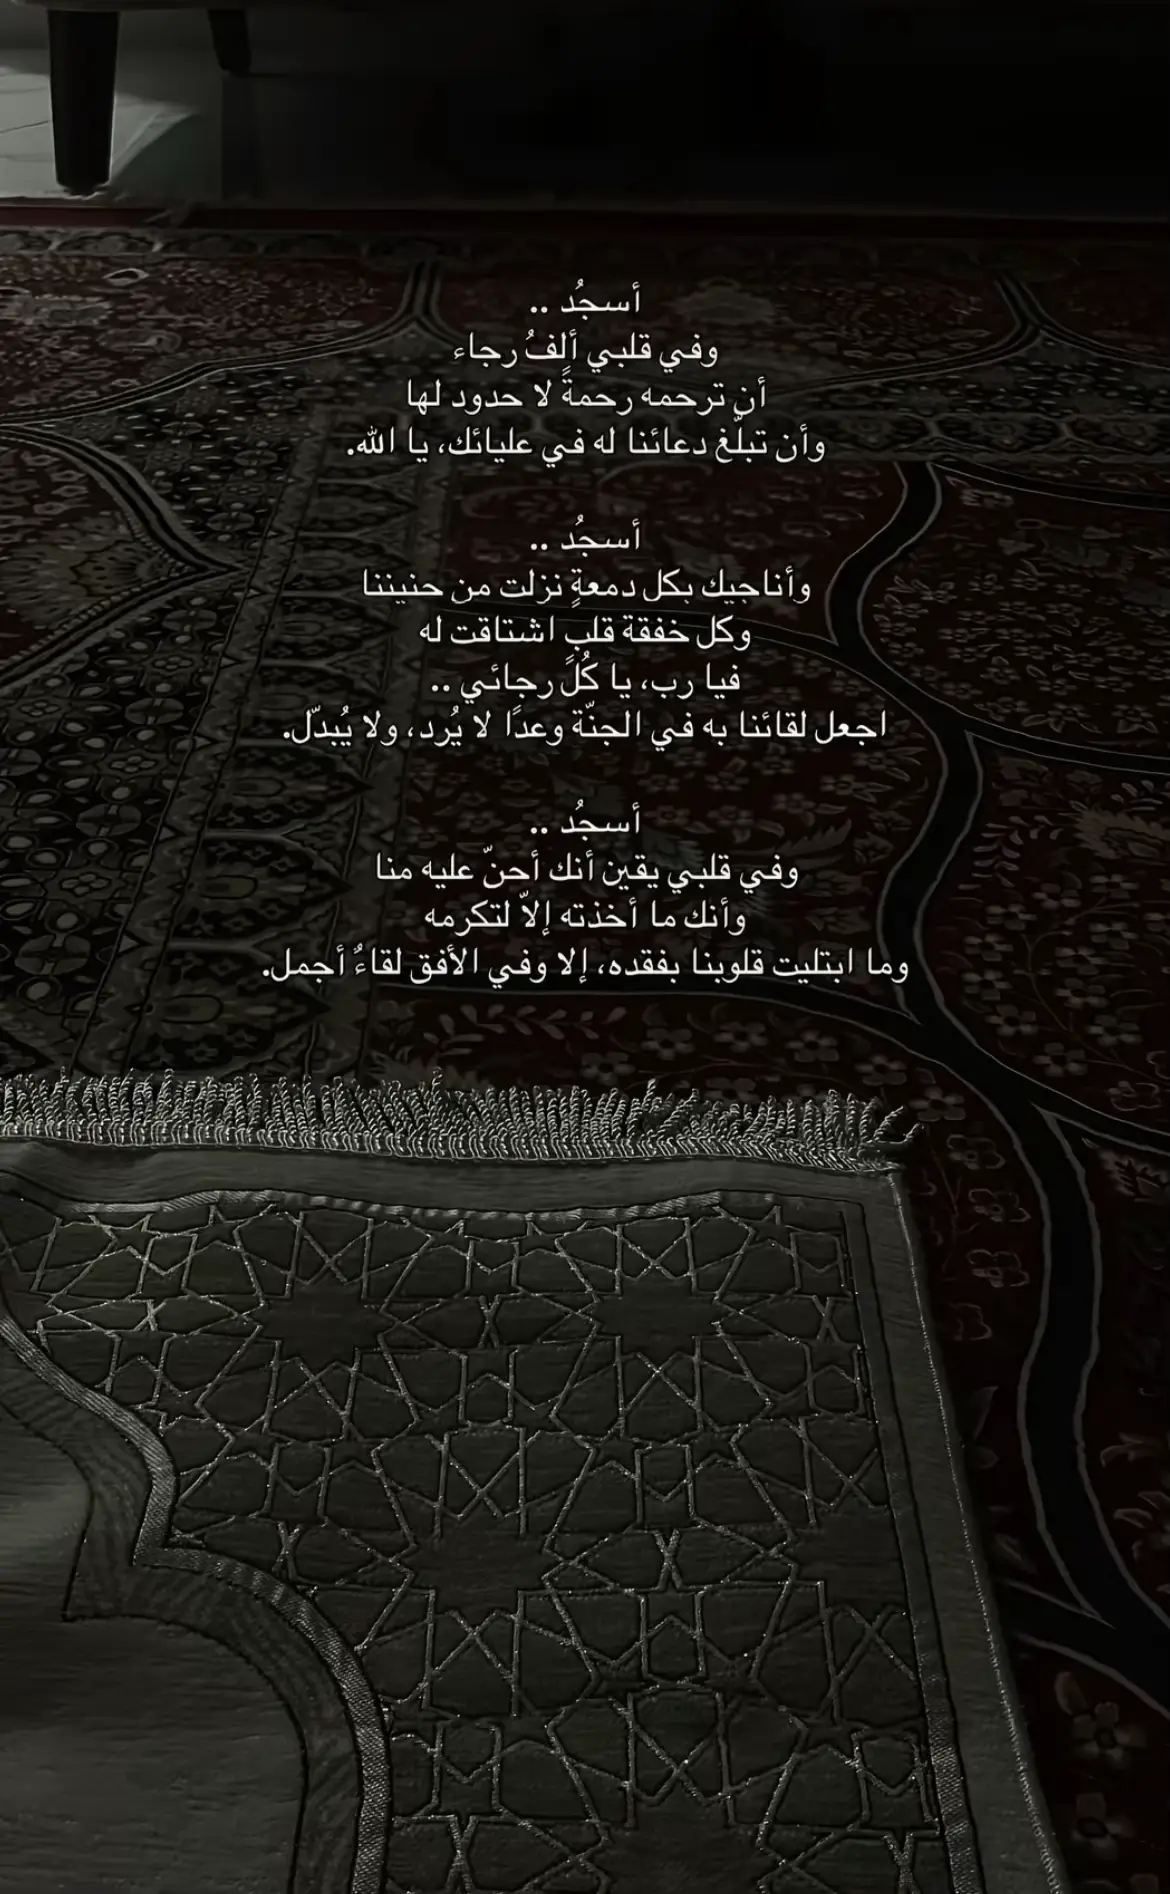 أسجُد ..
وفي قلبي ألفُ رجاء
أن ترحمه رحمةً لا حدود لها
وأن تبلّغ دعائنا له في عليائك، يا الله.
أسجُد ..
وأناجيك بكل دمعةٍ نزلت من حنيننا
وكل خفقة قلبٍ اشتاقت له
فيا رب، يا كُلّ رجائي ..
اجعل لقائنا به في الجنّة وعدًا لا يُرد، ولا يُبدّل.
أسجُد ..
وفي قلبي يقين أنك أحنّ عليه منا
وأنك ما أخذته إلاّ لتكرمه
وما ابتليت قلوبنا بفقده، إلا وفي الأفق لقاءٌ أجمل.